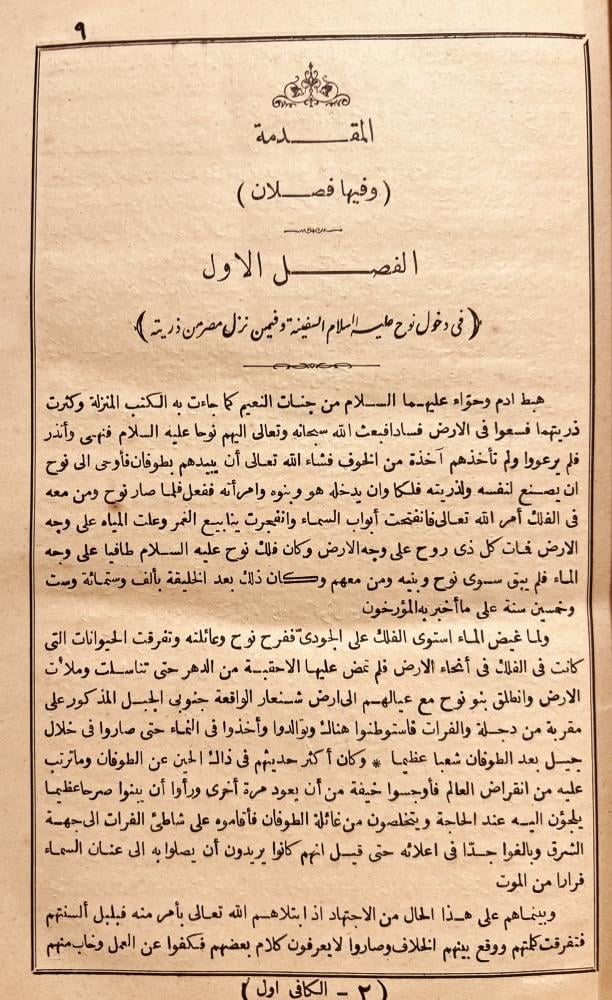 ٩
المقدمة
(وفيها فصلان)
الفصل الاول
(فى دخول نوح عليه السلام السفينة وفيمن نزل مصر من ذريته)
هبط ادم وحوّاء عليهما السلام من جنات النعيم كما جاءت به الكتب المنزلة وكثرت
ذريتهما فسعوا فى الارض فسادا فبعث الله سبحانه وتعالى اليهم نوحا عليه السلام فنهى وأنذر
فلم يرعووا ولم تأخذهم آخذة من الخوف فشاء الله تعالى أن يبيدهم بطوفان فأوحى الى نوح
ان يصنع لنفسه ولذريته فلكا وان يدخله هو وبنوه وامرأته ففعل فلما صار نوح ومن معه
فى الفلك أمر الله تعالى فانفتحت أبواب السماء وانفجرت ينابيع الغمر وعلت المياه على وجه
الارض فمات كل ذى روح على وجه الارض وكان فلك نوح عليه السلام طافيا على وجه
الماء فلم يبق سوى نوح وبنيه ومن معهم وكان ذلك بعد الخليقة بألف وستمائة وست
وخمسين سنة على ما أخبر به المؤرخون
ولما غيض الماء استوى الفلك على الجودىّ ففرح نوح وعائلته وتفرقت الحيوانات التى
كانت فى الفلك فى أنحاء الارض فلم تمض عليها الاحقبة من الدهر حتى تناسلت وملأت
الارض وانطلق بنو نوح مع عيالهم الى ارض شنعار الواقعة جنوبى الجبل المذكور على
مقربة من دجلة والفرات فاستوطنوا هناك وتوالدوا وأخذوا فى النماء حتى صاروا فى خلال
جيل بعد الطوفان شعبا عظيما * وكان أكثر حديثهم فى ذلك الحين عن الطوفان وما ترتب
عليه من انقراض العالم فأوجسوا خيفة من أن يعود مرة أخرى ورأوا أن يبنوا صرحا عظيما
يلجؤن اليه عند الحاجة ويتخلصون من غائلة الطوفان فأقاموه على شاطئ الفرات الى جهة
الشرق وبالغوا جدّا فى اعلائه حتى قيل انهم كانوا يريدون أن يصلوا به الى عنان السماء
فرارا من الموت
وبينما هم على هذا الحال من الاجتهاد اذ ابتلاهم الله تعالى بأمر منه فبلبل ألسنتهم
فتفرقت كلمتهم ووقع بينهم الخلاف وصاروا لا يعرفون كلام بعضهم فكفوا عن العمل وخاب منهم
(٢ - الكافى اول)